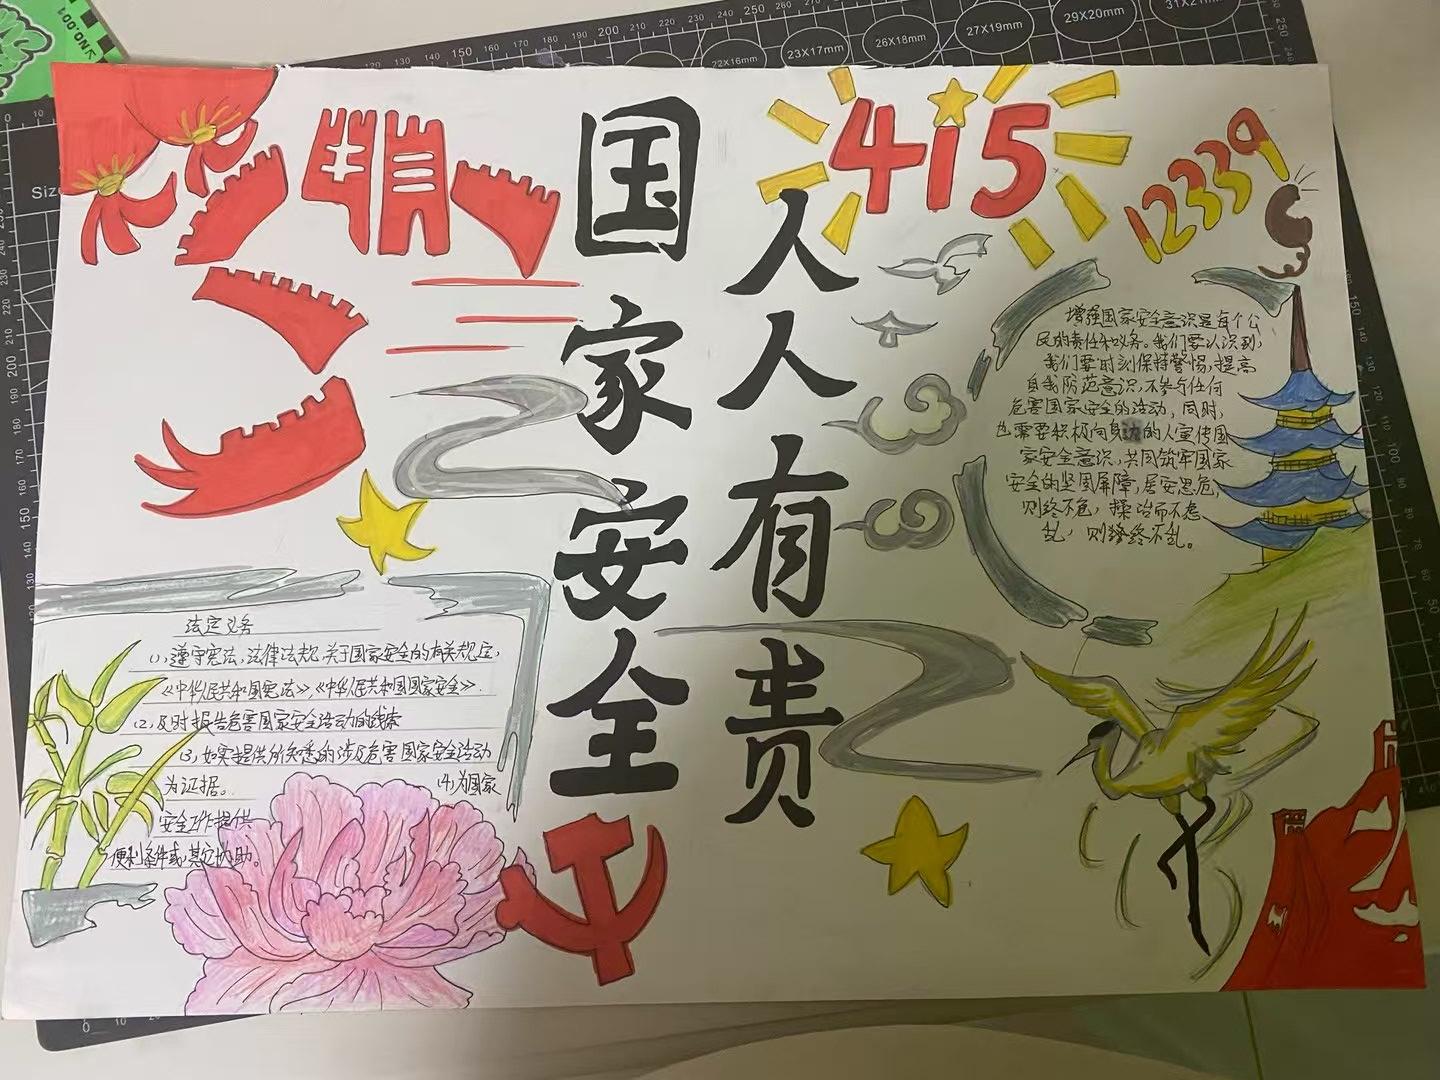 国家安全
人人有责
415
12339
增强国家安全意识是每个公
民的责任和义务。我们要认识到,
我们要时刻保持警惕,提高
自我防范意识,不参与任何
危害国家安全的活动,同时,
也需要积极向身边的人宣传国
家安全意识,共同筑牢国家
安全的坚固屏障,居安思危,
则终不危,操治而不虑
乱,则终不乱。
法定义务
(1),遵守宪法,法律法规,关于国家安全的有关规定,
《中华人民共和国宪法》,《中华人民共和国国家安全》.
(2),及时报告危害国家安全活动的线索
(3),如实提供所知悉的涉及危害国家安全活动
为证据。 (4),为国家
安全工作提供
便利条件或其它协助。
NO.001
Size
22X16mm
23X17mm
26X18mm
27X19mm
29X20mm
31X21mm